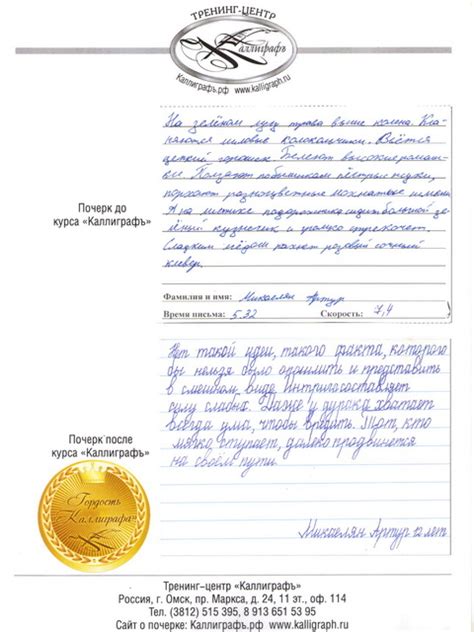 ТРЕНИНГ-ЦЕНТР
Каллиграфъ
Каллиграфъ.рф www.kalligraph.ru
На зелёном лугу трава выше колена. Кла-
няются лиловые колокольчики. Вьётся
цепкий горошек. Белеют высокие ромаш-
ки. Ползают по былинкам пёстрые жуки,
порхают разноцветные мохнатые
А на метёлке подорожника сидит большой зе-
лёный кузнечик и громко стрекочет.
Сладким мёдом пахнет розовый сочный
клевер.
Почерк до
курса «Каллиграфъ»
Фамилия и имя: Микаелян Артур
Время письма: 5.32 Скорость: 7,4
Нет такой идеи, такого факта, которого
бы нельзя было опошлить и представить
в смешном виде. Интриги составляет
силу слабых. Даже у дурака хватает
всегда ума, чтобы вредить. Тот, кто
мягко ступает, далеко продвинется
на своём пути.
Почерк после
курса «Каллиграфъ»
Гордость
Каллиграфа
Микаелян Артур 12 лет
Тренинг-центр «Каллиграфъ»
Россия, г. Омск, пр. Маркса, д. 24, 11 эт., оф. 114
Тел. (3812) 515 395, 8 913 651 53 95
Сайт о почерке: Каллиграфъ.рф www.kalligraph.ru